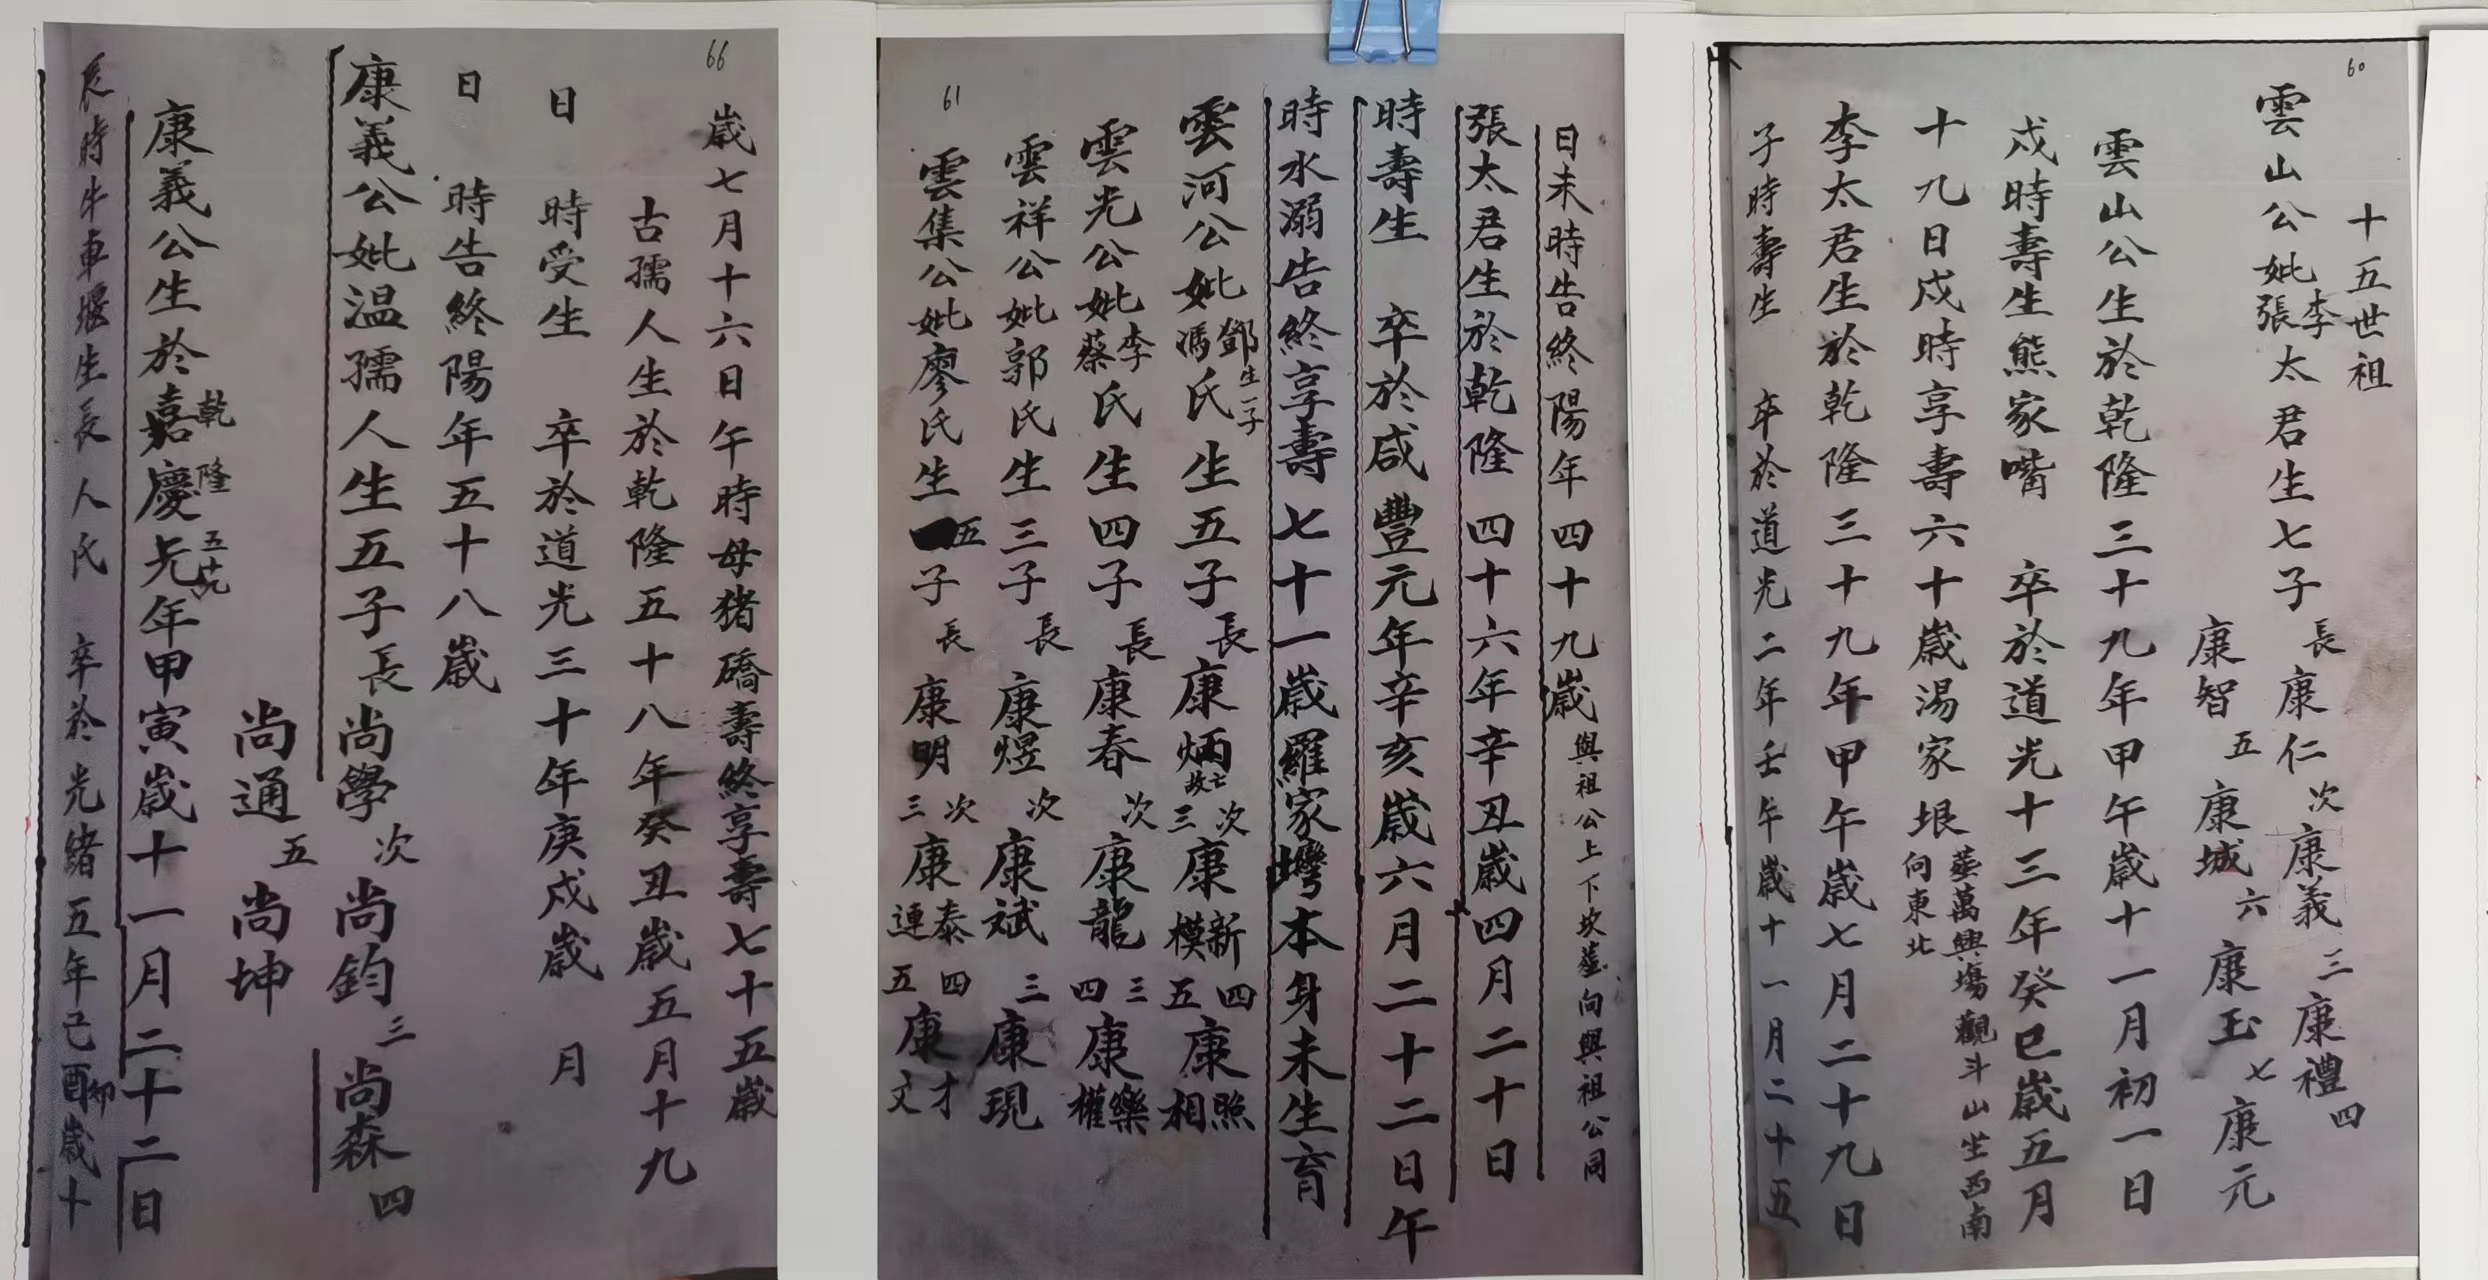 60
十五世祖
雲山公妣李張太君生七子 長康仁 次康義 三康禮 四
康智 五康城 六康玉 七康元
雲山公生於乾隆三十九年甲午歲十一月初一日
戍時壽生熊家嘴 卒於道光十三年癸巳歲五月
十九日戍時享壽六十歲湯家垠 塟萬興塲觀斗山坐西南
向東北
李太君生於乾隆三十九年甲午歲七月二十九日
子時壽生 卒於道光二年壬午歲十一月二十五
日未時告終陽年四十九歲 與祖公上下坎塟向與祖公同
張太君生於乾隆四十六年辛丑歲四月二十日
時壽生 卒於咸豐元年辛亥歲六月二十二日午
時水溺告終享壽七十一歲羅家塆本身未生育
雲河公妣鄧生一子馮氏生五子 長康炳故亡 次三康新模 四五康照相
雲光公妣李蔡氏生四子 長康春 次康龍 三四康樂權
雲祥公妣郭氏生三子 長康煜 次康斌 三康現
61
雲集公妣廖氏生五子 長康明 次三康泰連 四五康才文
66
歲七月十六日午時母猪礄壽終享壽七十五歲
古孺人生於乾隆五十八年癸丑歲五月十九
日 時受生 卒於道光三十年庚戍歲 月
日 時告終陽年五十八歲
康義公妣温孺人生五子 長尚學 次尚鈞 三尚森 四
尚通 五尚坤
康義公生於嘉慶元年甲寅歲十一月二十二日
乾隆五十九
辰時牛車堰生長人氏 卒於光緒五年己酉卯歲十